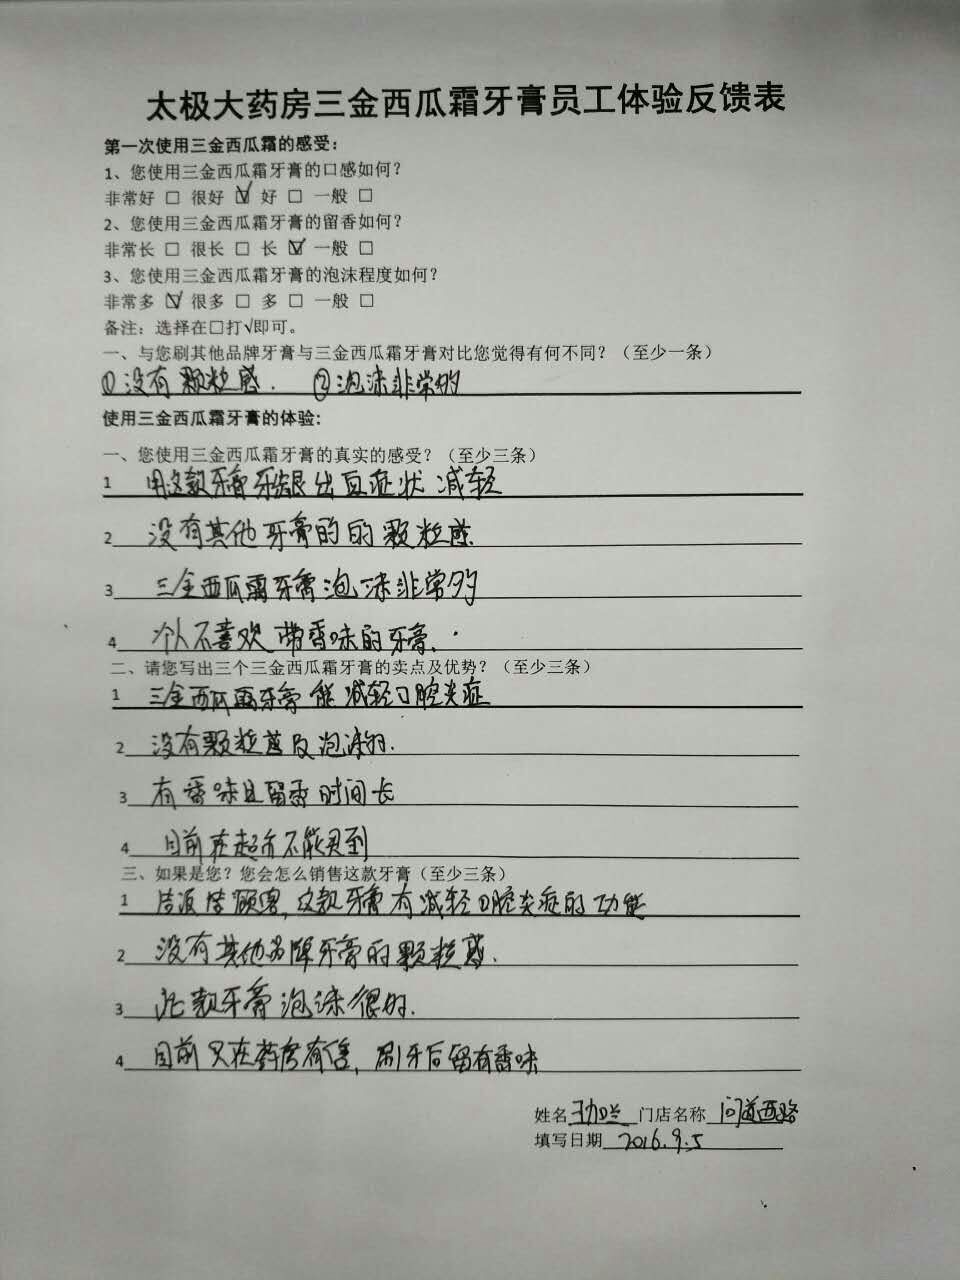 太极大药房三金西瓜霜牙膏员工体验反馈表
第一次使用三金西瓜霜的感受：
1、您使用三金西瓜霜牙膏的口感如何？
非常好 □ 很好 ☑ 好 □ 一般 □
2、您使用三金西瓜霜牙膏的留香如何？
非常长 □ 很长 □ 长 ☑ 一般 □
3、您使用三金西瓜霜牙膏的泡沫程度如何？
非常多 ☑ 很多 □ 多 □ 一般 □
备注：选择在□打√即可。
一、与您刷其他品牌牙膏与三金西瓜霜牙膏对比您觉得有何不同？（至少一条）
①没有颗粒感. ②泡沫非常多
使用三金西瓜霜牙膏的体验:
一、您使用三金西瓜霜牙膏的真实的感受？（至少三条）
1 用这款牙膏牙龈出血症状减轻
2 没有其他牙膏的的颗粒感.
3 三金西瓜霜牙膏泡沫非常多
4 个人不喜欢带香味的牙膏.
二、请您写出三个三金西瓜霜牙膏的卖点及优势？（至少三条）
1 三金西瓜霜牙膏能减轻口腔炎症
2 没有颗粒感及泡沫多.
3 有香味且留香时间长
4 目前在超市不能买到
三、如果是您？您会怎么销售这款牙膏（至少三条）
1 告诉顾客,这款牙膏有减轻口腔炎症的功能
2 没有其他品牌牙膏的颗粒感.
3 此款牙膏泡沫很多.
4 目前只在药房有售,刷牙后留有香味
姓名 门店名称 西路
填写日期 2016.9.5